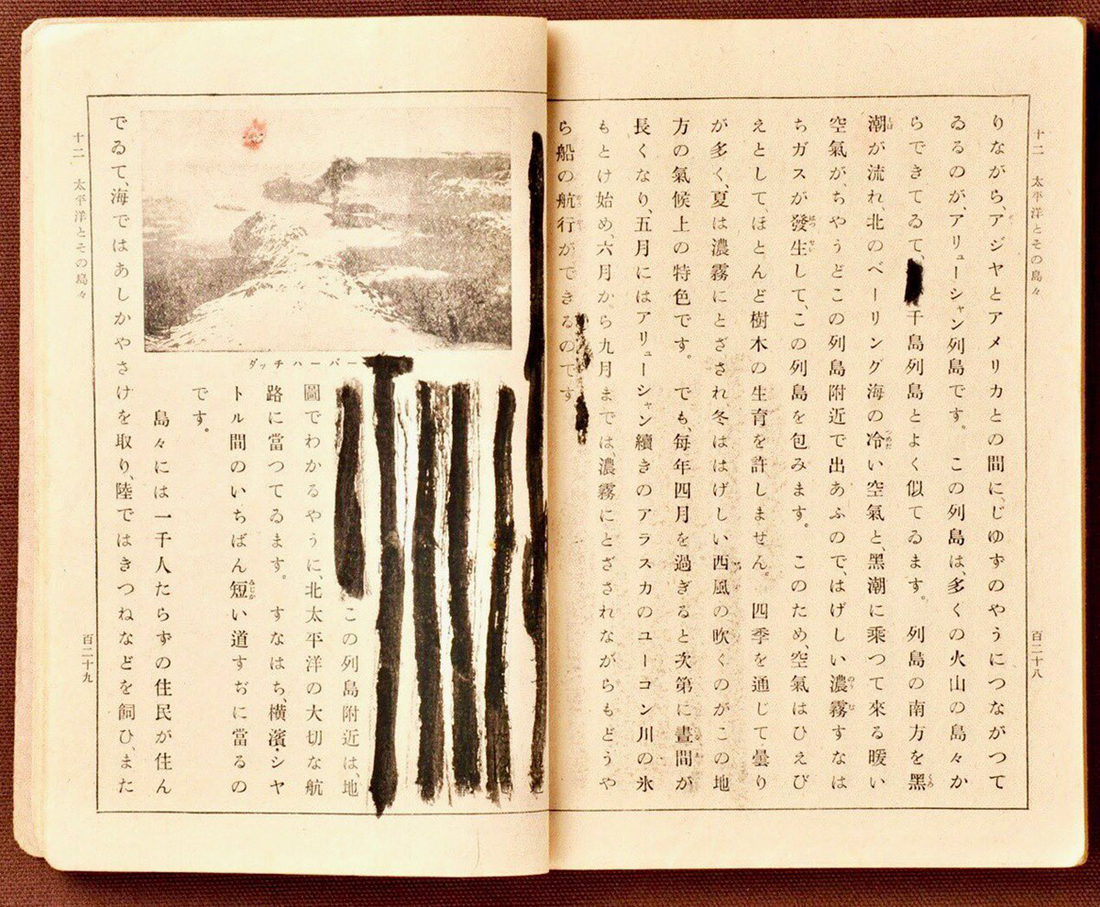 十二 太平洋とその島々
百二十八
りながら、アジヤとアメリカとの間に、じゆずのやうにつながつて
ゐるのが、アリューシャン列島です。この列島は、多くの火山の島々か
らできてゐて、
千島列島とよく似てゐます。列島の南方を黑
潮が流れ、北のベーリング海の冷い空氣と、黑潮に乘つて來る暖い
空氣が、ちやうどこの列島附近で出あふので、はげしい濃霧すなは
ちガスが發生して、この列島を包みます。このため、空氣はひえび
えとして、ほとんど樹木の生育を許しません。四季を通じて曇り
が多く、夏は濃霧にとざされ冬ははげしい西風の吹くのがこの地
方の氣候上の特色です。でも、每年四月を過ぎると次第に晝間が
長くなり、五月にはアリューシャン續きのアラスカのユーコン川の氷
もとけ始め、六月から九月までは、濃霧にとざされながらもどうや
ら船の航行ができるのです
ダッチハーバー
この列島附近は、地
圖でわかるやうに、北太平洋の大切な航
路に當つてゐます。すなはち、橫濱・シヤ
トル間のいちばん短い道すぢに當るの
です。
島々には一千人たらずの住民が住ん
でゐて、海ではあしかやさけを取り、陸ではきつねなどを飼ひ、また
十二 太平洋とその島々
百二十九